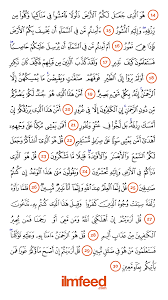 14 هُوَ ٱلَّذِى جَعَلَ لَكُمُ ٱلْأَرْضَ ذَلُولًا فَٱمْشُوا۟ فِى مَنَاكِبِهَا وَكُلُوا۟ مِن
رِّزْقِهِۦ وَإِلَيْهِ ٱلنُّشُورُ 15 ءَأَمِنتُم مَّن فِى ٱلسَّمَآءِ أَن يَخْسِفَ بِكُمُ ٱلْأَرْضَ
فَإِذَا هِىَ تَمُورُ 16 أَمْ أَمِنتُم مَّن فِى ٱلسَّمَآءِ أَن يُرْسِلَ عَلَيْكُمْ حَاصِبًا
فَسَتَعْلَمُونَ كَيْفَ نَذِيرِ 17 وَلَقَدْ كَذَّبَ ٱلَّذِينَ مِن قَبْلِهِمْ فَكَيْفَ كَانَ نَكِيرِ
18 أَوَلَمْ يَرَوْا۟ إِلَى ٱلطَّيْرِ فَوْقَهُمْ صَٰٓفَّٰتٍ وَيَقْبِضْنَ مَا يُمْسِكُهُنَّ إِلَّا
ٱلرَّحْمَٰنُ إِنَّهُۥ بِكُلِّ شَىْءٍۭ بَصِيرٌ 19 أَمَّنْ هَٰذَا ٱلَّذِى هُوَ جُندٌ لَّكُمْ يَنصُرُكُم
مِّن دُونِ ٱلرَّحْمَٰنِ إِنِ ٱلْكَٰفِرُونَ إِلَّا فِى غُرُورٍ 20 أَمَّنْ هَٰذَا ٱلَّذِى يَرْزُقُكُمْ إِنْ
أَمْسَكَ رِزْقَهُۥ بَل لَّجُّوا۟ فِى عُتُوٍّ وَنُفُورٍ 21 أَفَمَن يَمْشِى مُكِبًّا عَلَىٰ وَجْهِهِۦٓ
أَهْدَىٰٓ أَمَّن يَمْشِى سَوِيًّا عَلَىٰ صِرَٰطٍ مُّسْتَقِيمٍ 22 قُلْ هُوَ ٱلَّذِىٓ أَنشَأَكُمْ وَجَعَلَ
لَكُمُ ٱلسَّمْعَ وَٱلْأَبْصَٰرَ وَٱلْأَفْـِٔدَةَ قَلِيلًا مَّا تَشْكُرُونَ 23 قُلْ هُوَ ٱلَّذِى
ذَرَأَكُمْ فِى ٱلْأَرْضِ وَإِلَيْهِ تُحْشَرُونَ 24 وَيَقُولُونَ مَتَىٰ هَٰذَا ٱلْوَعْدُ إِن كُنتُمْ
صَٰدِقِينَ 25 قُلْ إِنَّمَا ٱلْعِلْمُ عِندَ ٱللَّهِ وَإِنَّمَآ أَنَا۠ نَذِيرٌ مُّبِينٌ 26 فَلَمَّا رَأَوْهُ
زُلْفَةً سِيٓـَٔتْ وُجُوهُ ٱلَّذِينَ كَفَرُوا۟ وَقِيلَ هَٰذَا ٱلَّذِى كُنتُم بِهِۦ تَدَّعُونَ
27 قُلْ أَرَءَيْتُمْ إِنْ أَهْلَكَنِىَ ٱللَّهُ وَمَن مَّعِىَ أَوْ رَحِمَنَا فَمَن يُجِيرُ
ٱلْكَٰفِرِينَ مِنْ عَذَابٍ أَلِيمٍ 28 قُلْ هُوَ ٱلرَّحْمَٰنُ ءَامَنَّا بِهِۦ وَعَلَيْهِ تَوَكَّلْنَا
فَسَتَعْلَمُونَ مَنْ هُوَ فِى ضَلَٰلٍ مُّبِينٍ 29 قُلْ أَرَءَيْتُمْ إِنْ أَصْبَحَ مَآؤُكُمْ غَوْرًا فَمَن
يَأْتِيكُم بِمَآءٍ مَّعِينٍۭ 30
ilmfeed